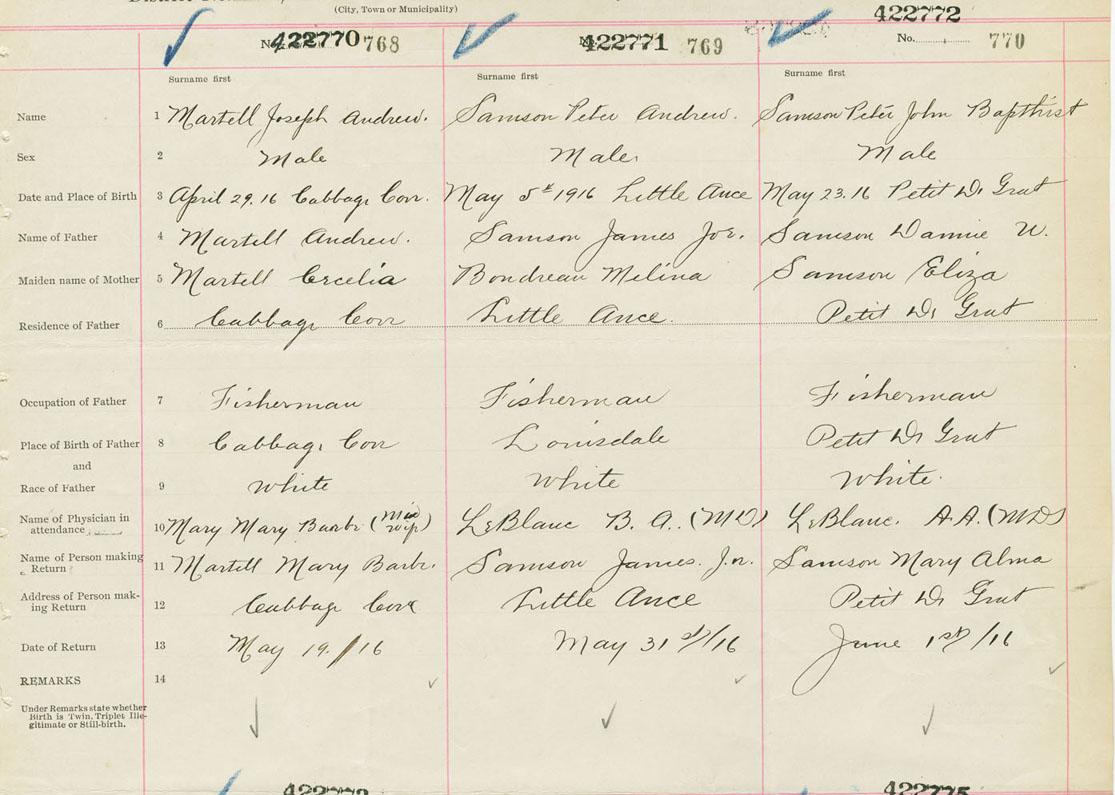 (City, Town or Municipality)
422770 768 422771 769 422772 No. 770
Surname first Surname first Surname first
Name 1 Martell Joseph Andrew. Samson Peter Andrew. Samson Peter John Bapthist
Sex 2 Male Male Male
Date and Place of Birth 3 April 29. 16 Cabbage Cove. May 5th 1916 Little Ance May 23. 16 Petit De Grat
Name of Father 4 Martell Andrew. Samson James Jor. Samson Dannie W.
Maiden name of Mother 5 Martell Cecelia Boudreau Melina Samson Eliza
Residence of Father 6 Cabbage Cove Little Ance. Petit De Grat
Occupation of Father 7 Fisherman Fisherman Fisherman
Place of Birth of Father 8 Cabbage Cove Louisdale Petit De Grat
and
Race of Father 9 White White White.
Name of Physician in
attendance 10 Mary Mary Barbr (Mid wife) LeBlanc B. A.. (MD) LeBlanc. A.A. (MD)
Name of Person making
Return 11 Martell Mary Barbr. Samson James. Jr. Samson Mary Alma
Address of Person mak-
ing Return 12 Cabbage Cove Little Ance Petit De Grat
Date of Return 13 May 19. /16 May 31st/16 June 1st/16
REMARKS 14
Under Remarks state whether
Birth is Twin, Triplet Ille-
gitimate or Still-birth.
422775